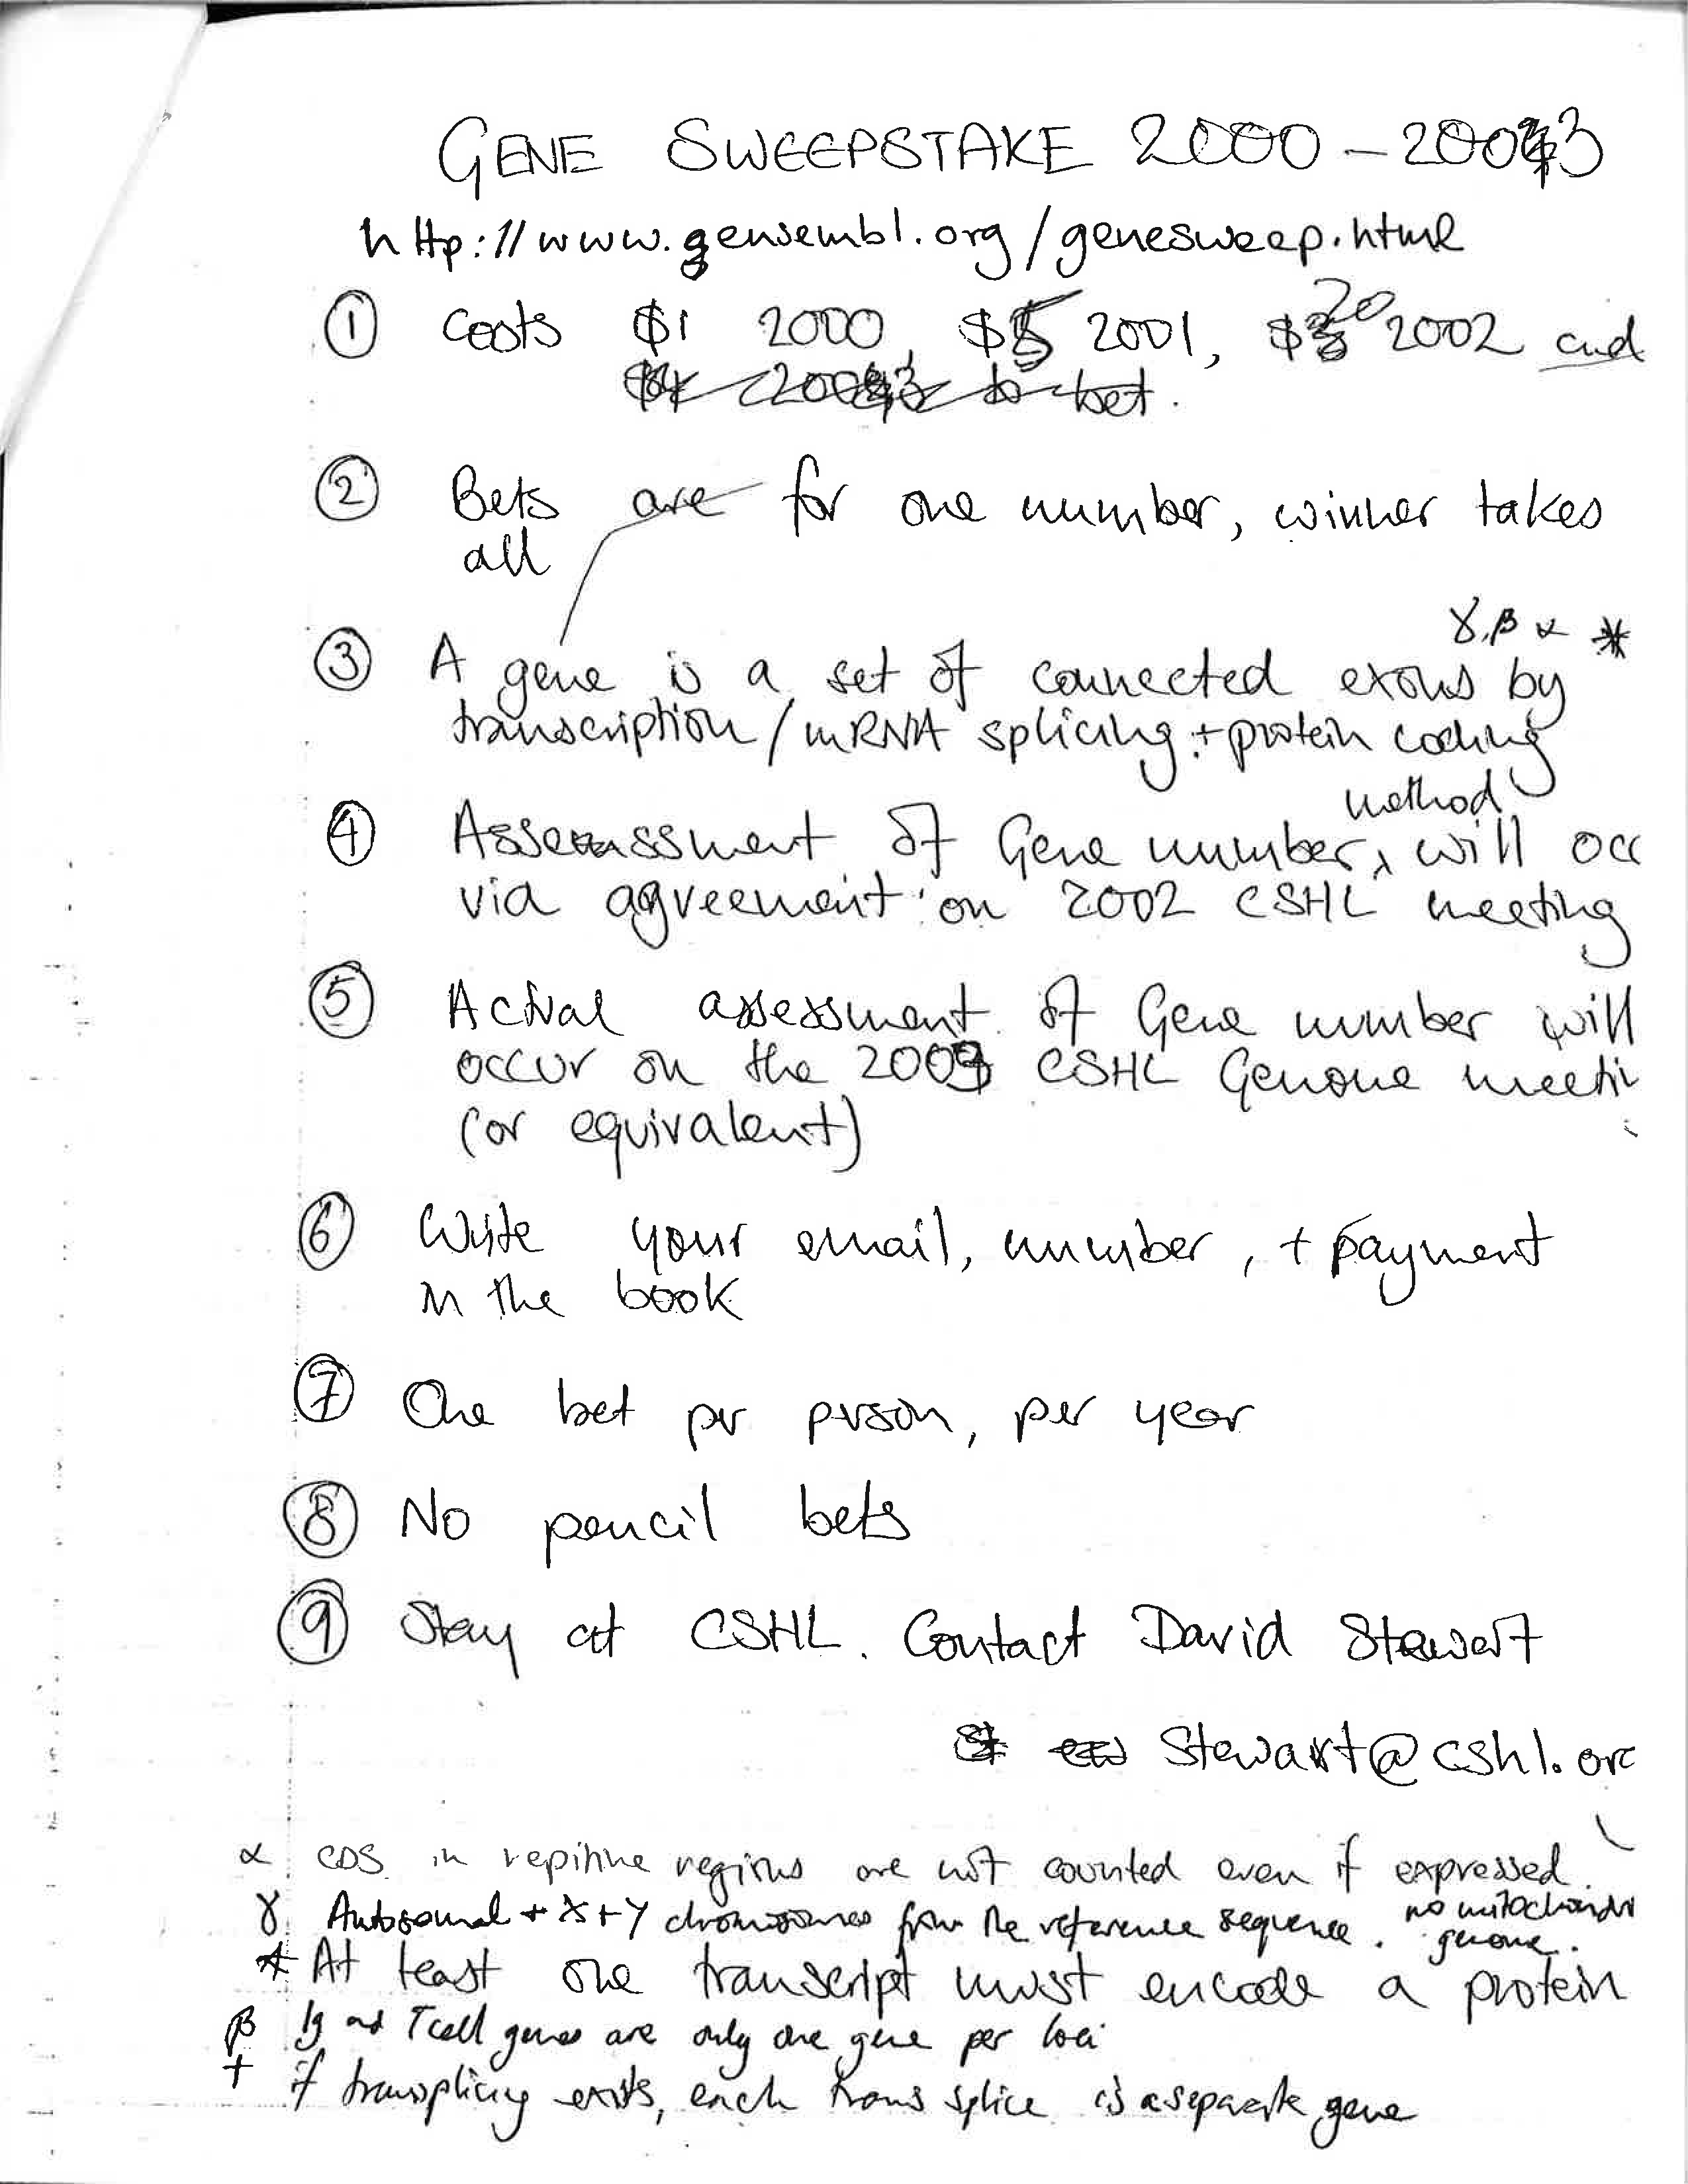 GENE SWEEPSTAKE 2000 – 2003
http://www.ensembl.org/genesweep.html
① Costs $1 2000, $5 2001, $20 2002 and
to bet.
② Bets are for one number, winner takes
all
γ, β α *
③ A gene is a set of connected exons by
transcription/mRNA splicing + protein coding
method
④ Assessment of Gene number, will occ
via agreement on 2002 CSHL meeting
⑤ Actual assessment of Gene number will
occur on the 2003 CSHL Genome meeti
(or equivalent)
⑥ Write your email, number, + payment
in the book
⑦ One bet per person, per year
⑧ No pencil bets
⑨ Stay at CSHL. Contact David Stewart
Stewart@cshl.org
α CDS in repitive regions are not counted even if expressed.
γ Autosomal + X + Y chromosomes from the reference sequence. no mitochondri
genome.
* At least one transcript must encode a protein
β Ig and Tcell genes are only one gene per loci
+ if transplicing exits, each trans splice is a separate gene